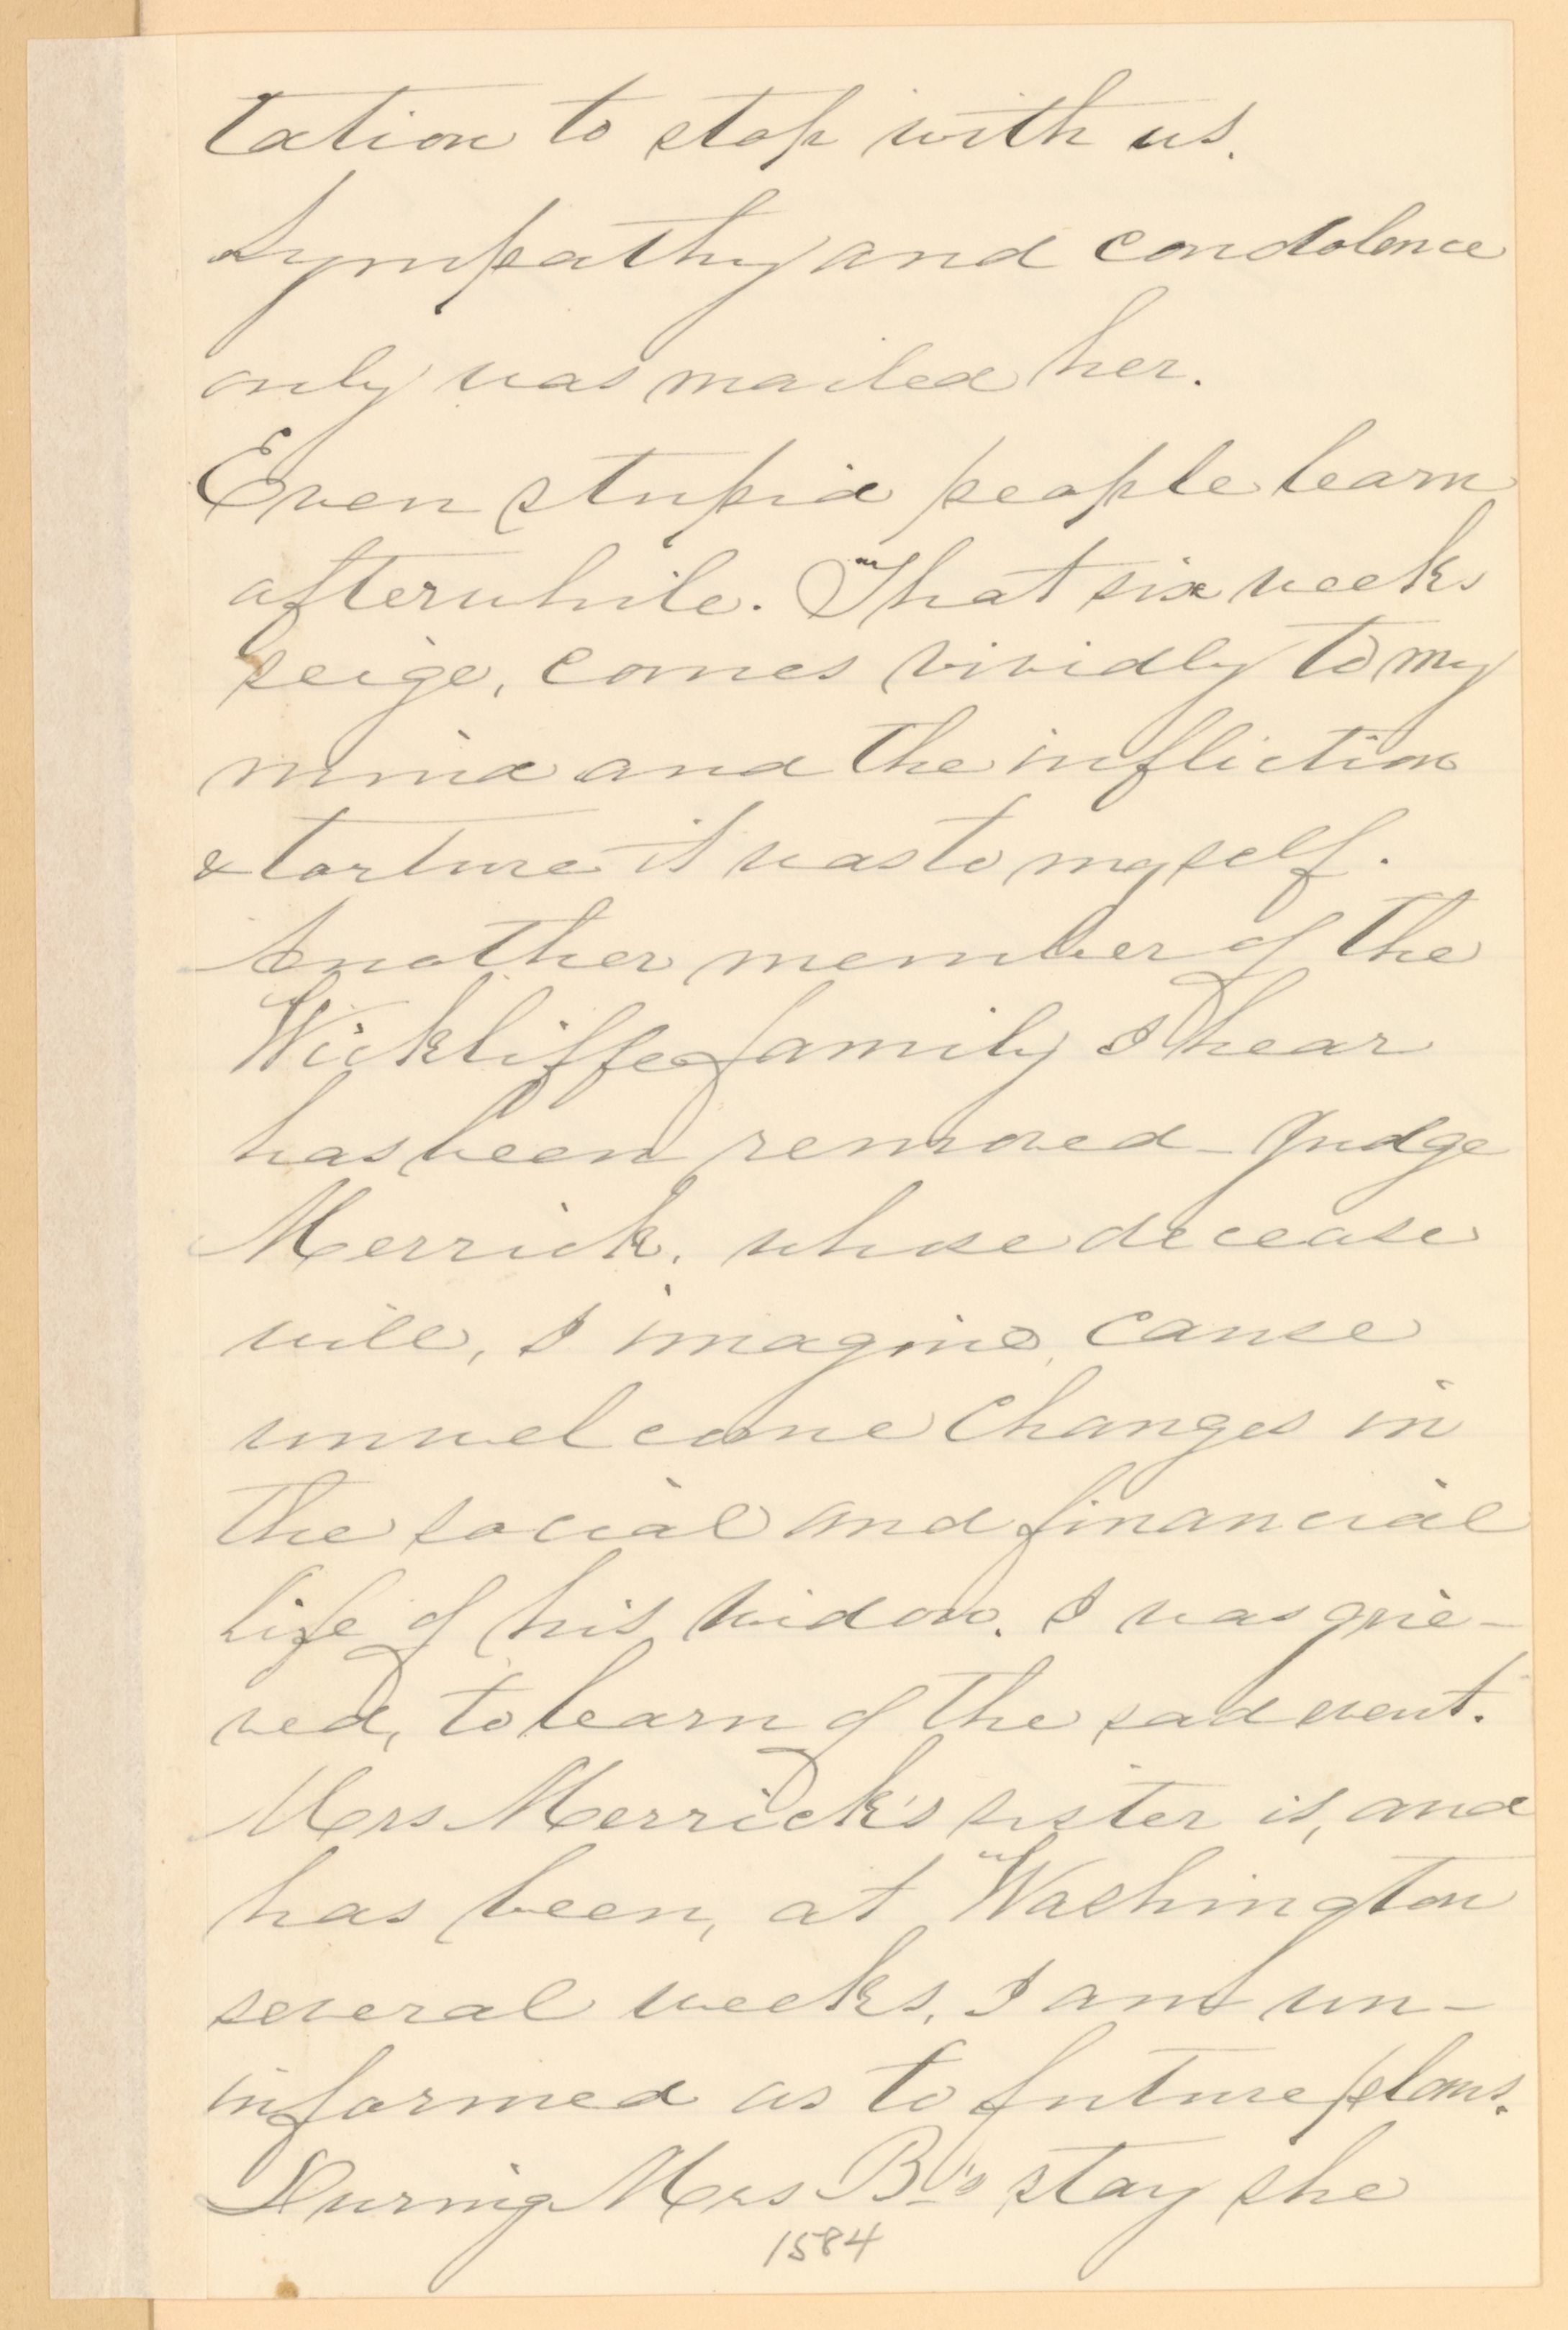 tation to stop with us.
Sympathy and condolence
only was mailed her.
Even stupid people learn
afterwhile. That six weeks
seige, comes vividly to my
mind and the infliction
& torture it was to myself.
Another member of the
Wickliffe family I hear
has been removed - Judge
Merrick, whose decease
will, I imagine, cause
unwelcome changes in
the social and financial
life of his widow. I was grie-
ved, to learn of the sad event.
Mrs Merrick's sister is, and
has been, at Washington
several weeks, I am un-
informed as to future plans.
During Mrs B's stay she
1584